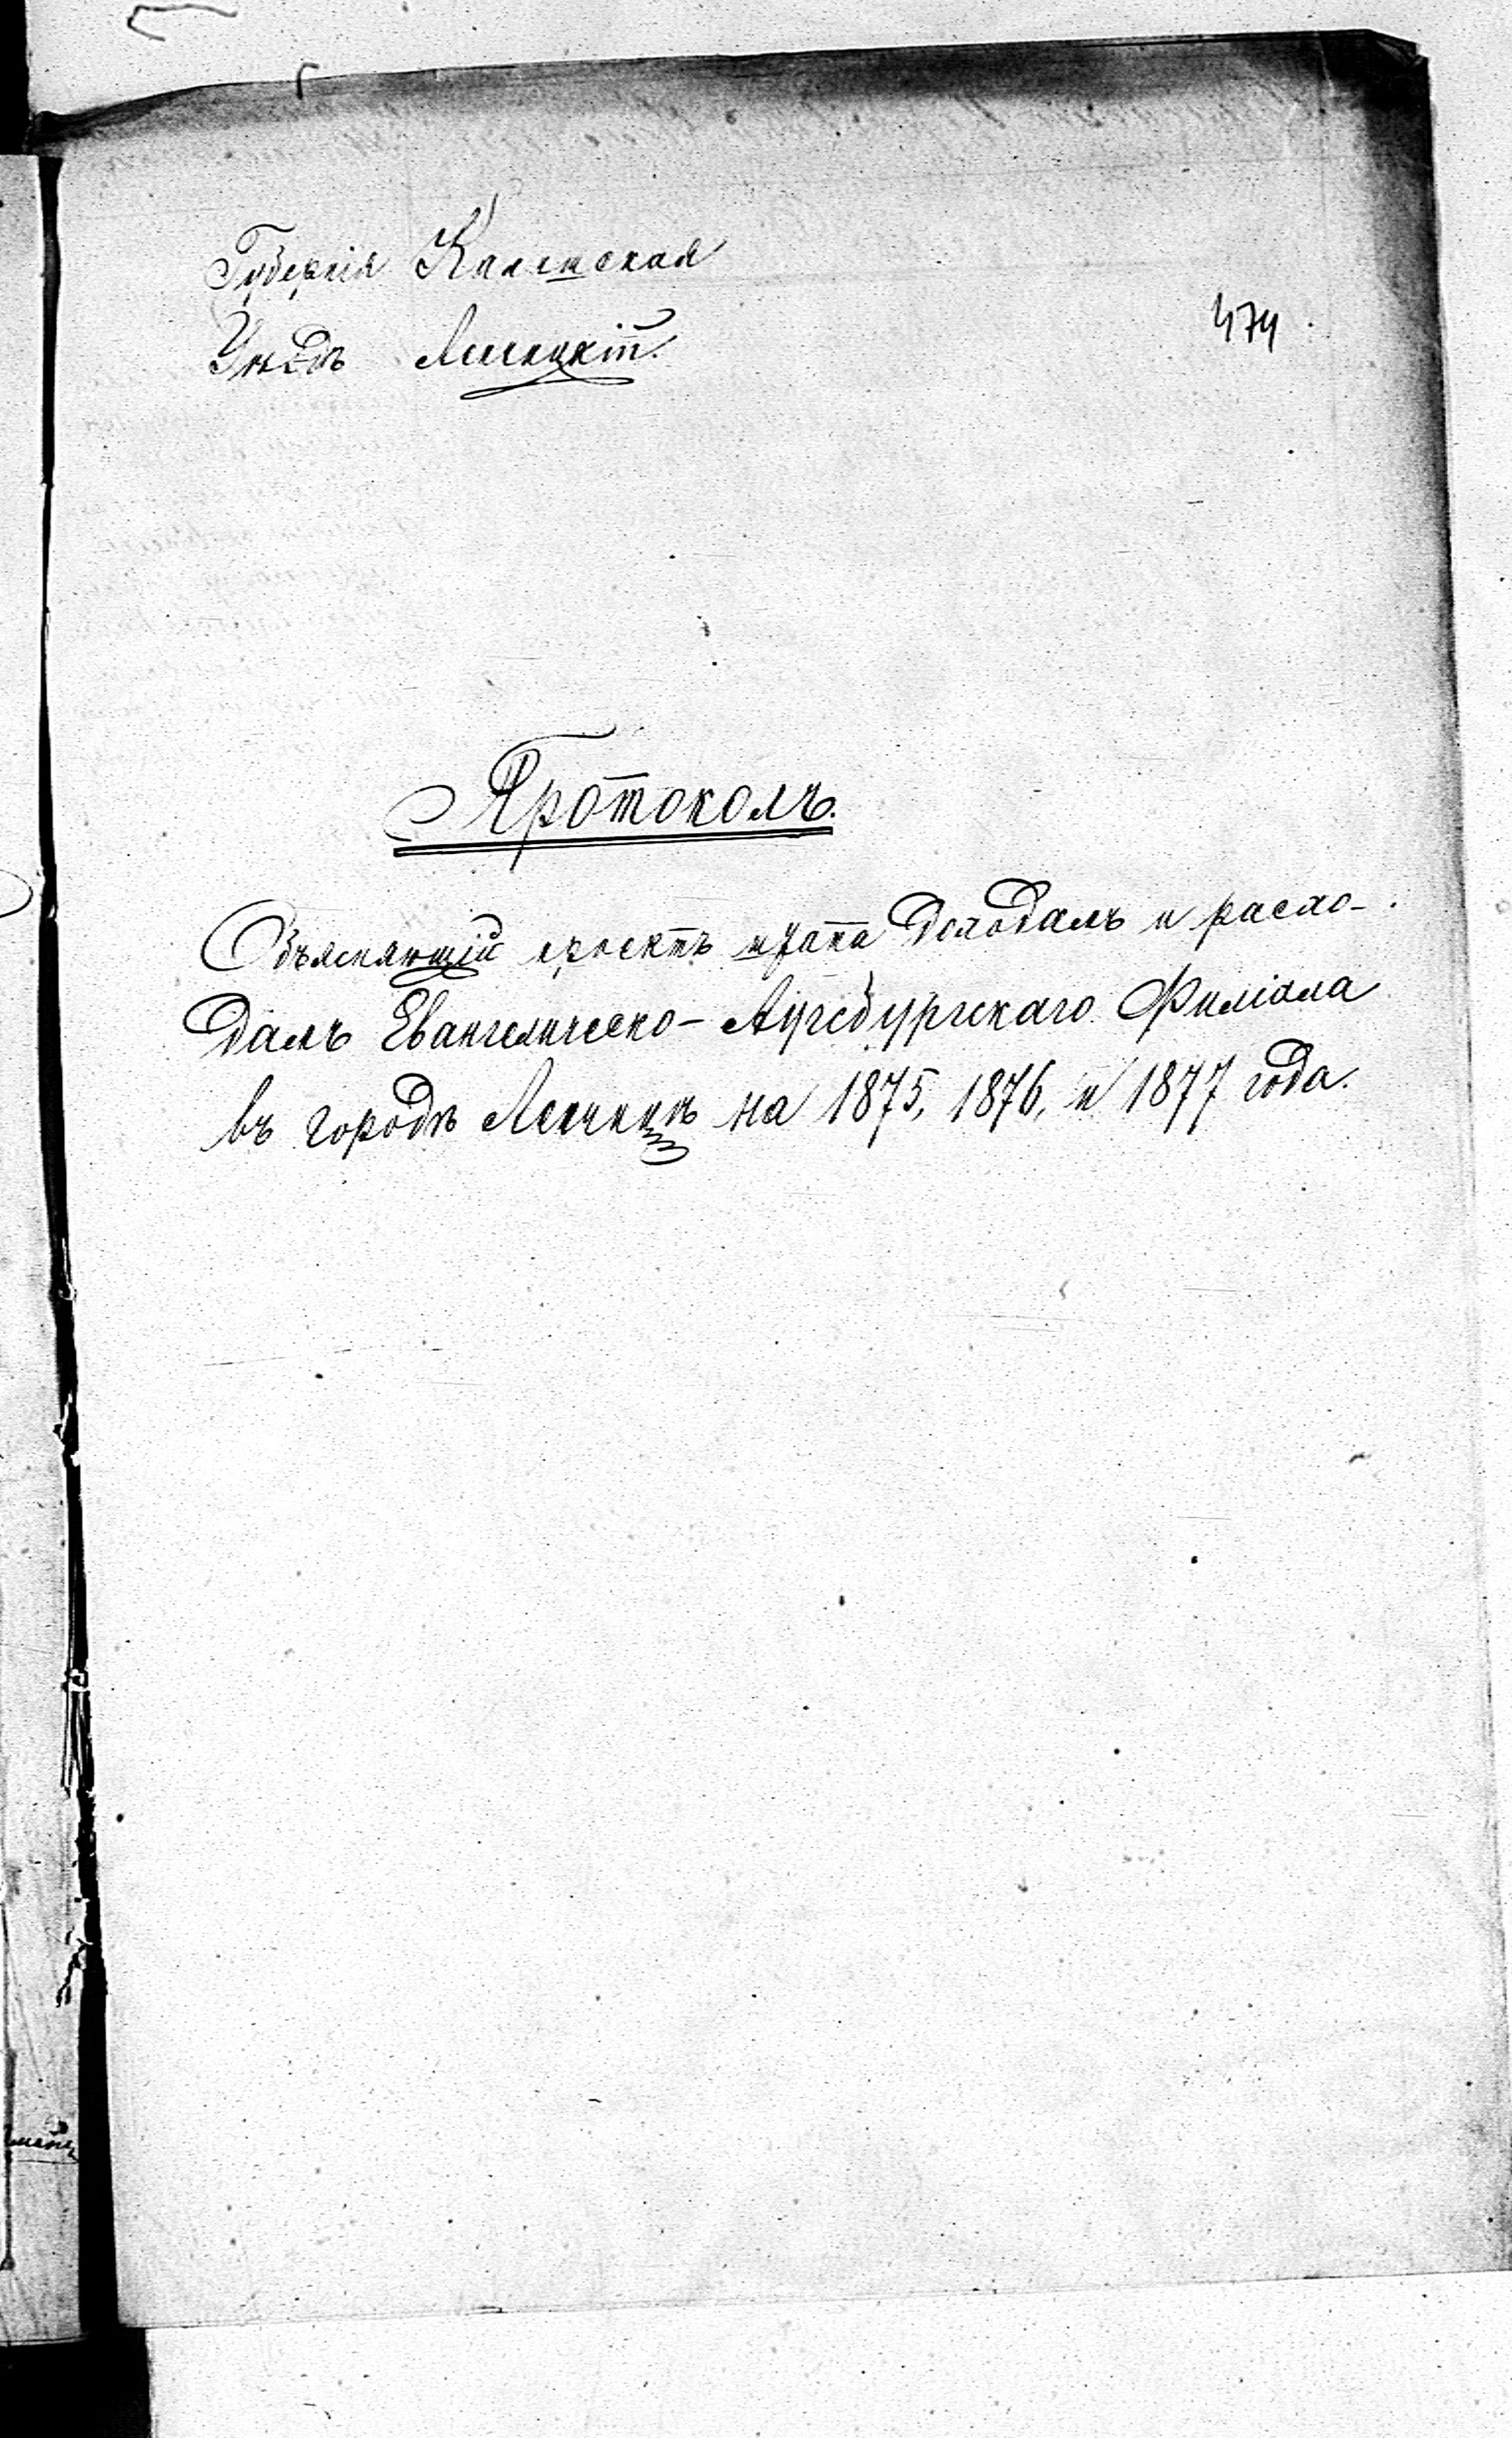 Губернія Калишская
Уѣздъ Ленчицкій.
474
Протоколъ.
Объясняющій проектъ штата доходамъ и расхо-
дамъ Евангелическо-Аугсбургскаго Филіала
въ городѣ Ленчицѣ на 1875, 1876, и 1877 года.